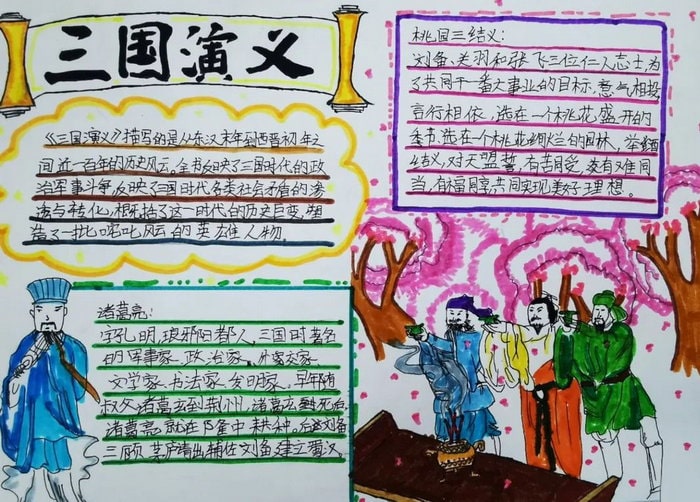 三国演义
《三国演义》描写的是从东汉末年到西晋初年之
间近一百年的历史风云。全书反映了三国时代的政
治军事斗争,反映了三国时代各类社会矛盾的渗
透与转化,概括了这一时代的历史巨变,塑
造了一批叱咤风云的英雄人物。
桃园三结义:
刘备、关羽和张飞三位仁人志士,为
了共同干一番大事业的目标,意气相投
言行相依,选在一个桃花盛开的
季节选在一个桃花绚烂的园林,举酒
结义,对天盟誓,有苦同受,有难同
当,有福同享,共同实现美好理想。
诸葛亮:
字孔明,琅琊阳都人,三国时著名
的军事家、政治家、外交家、
文学家、书法家、发明家。早年随
叔父诸葛玄到荆州,诸葛玄死
诸葛亮就在隆中耕种。刘备
三顾茅庐请出辅佐刘备建立蜀汉